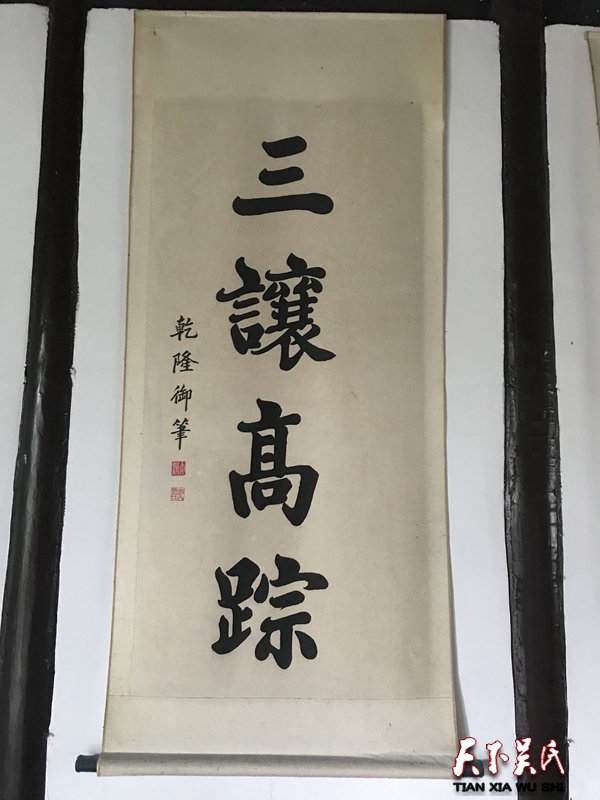 三讓髙踪
乾隆御筆
天下吴氏
TIAN XIA WU SHI